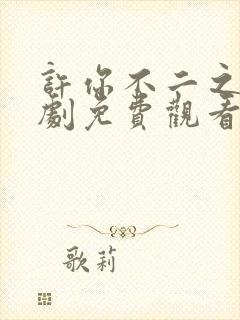 許你不二之
劇免費觀看
歌莉